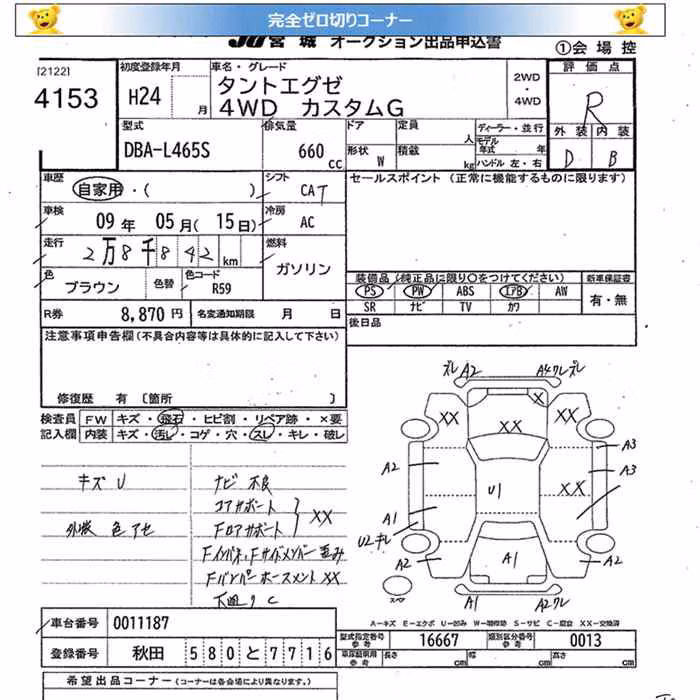 完全ゼロ切りコーナー
JU宮城 オークション出品申込書
①会場控
[2122]
4153
初度登録年月
H24 月
車名・グレード
タントエグゼ
4WD カスタムG
2WD
・
4WD
評価点
R
外装 内装
D B
型式
DBA-L465S
排気量
660 cc
ドア
定員 人
形状 W
積載 kg
ディーラー・並行
モデル年式 年
ハンドル 左・右
車歴
自家用・( )
シフト
CAT
セールスポイント (正常に機能するものに限ります)
車検
09 年 05 月 (15 日)
冷房
AC
走行
2万8千842 km
燃料
ガソリン
色
ブラウン
色替
色コード
R59
装備品(純正品に限り〇をつけてください)
新車保証書
PS PW ABS エアB AW
有・無
SR ナビ TV カワ
R券
8,870 円
名変通知期限 月 日
後日品
注意事項申告欄(不具合内容等は具体的に記入して下さい)
修復歴 有 〔箇所 〕
検査員
記入欄
FW キズ・飛石・ヒビ割・リペア跡・×要
内装 キズ・汚レ・コゲ・穴・スレ・キレ・破レ
キズ U
外板 色アセ
ナビ 不良
コアサポート
Fロアサポート
XX
Fインパネ、Fサイドメンバー 歪み
Fバンパーホースメント XX
下廻り C
ズレ A2
A4クレズレ
XX
XX
X
A3
A3
A2
U1
XX
A1
U2キレ
A2
A1
A2
スペア
A1
A2クレ
A-キズ E-エクボ U-凹み W-補修跡 S-サビ C-腐食 XX-交換済
車台番号
0011187
型式指定番号
参考
16667
類別区分番号
参考
0013
登録番号
秋田 580 と 7716
車庫証明用
参考
長さ cm
幅 cm
高さ cm
希望出品コーナー (コーナーは会場により異なります。)